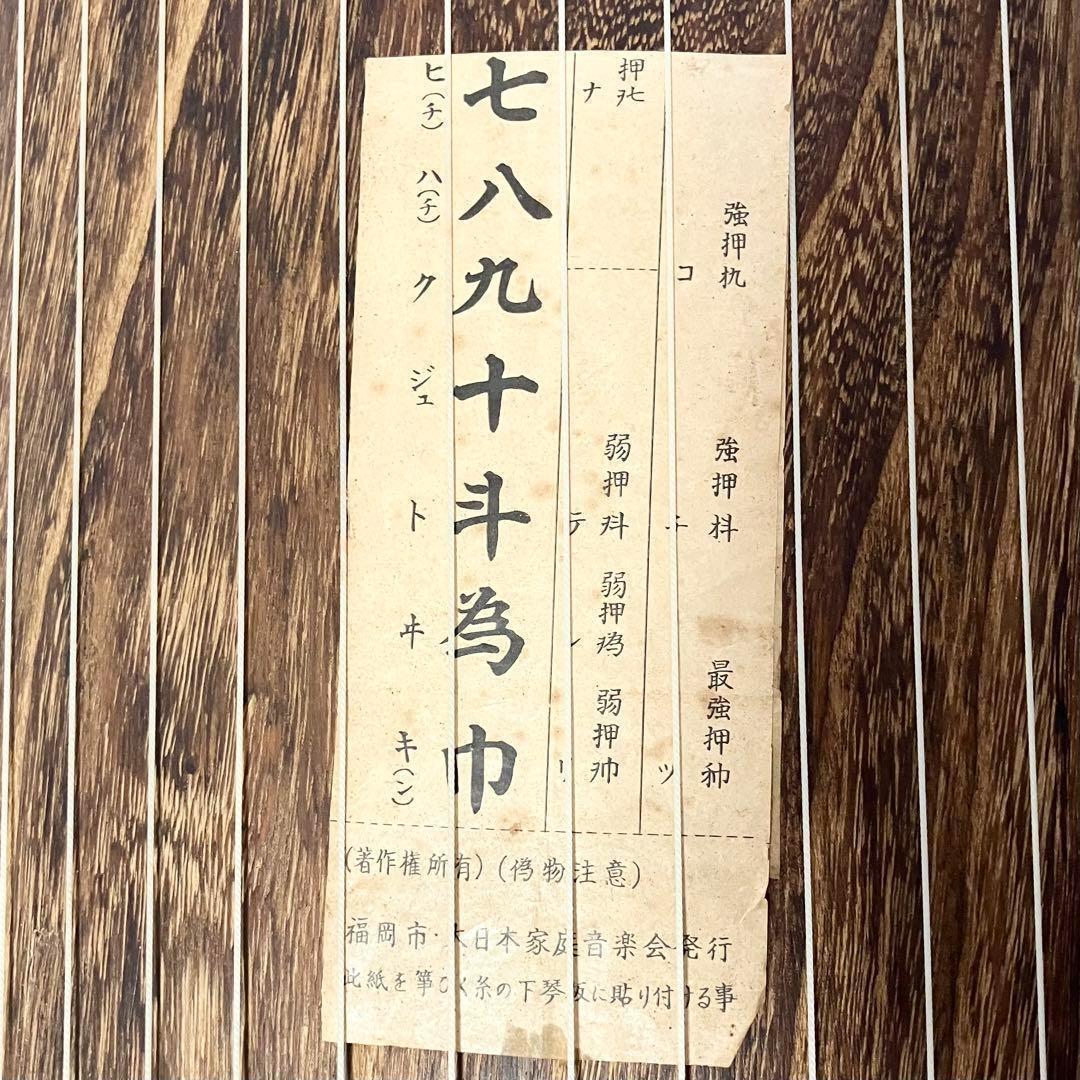 強押㧤
コ
強押枓
チ
最強押
ツ
押
ナ
弱押
テ
弱押
弱押
リ
七八九十斗為巾
ヒ(チ)
ハ(チ)
ク
ジュ
ト
ヰ
キ(ン)
(著作権所有)(偽物注意)
福岡市・大日本家庭音楽会発行
此紙を箏ひく糸の下琴板に貼り付ける事